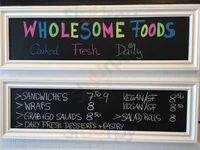 WHOLESOME FOODS
Cooked Fresh Daily
> SANDWICHES 7.50 9 VEGAN/GF 8.50
> WRAPS 8 VEGAN/GF 8.50
> GRAB & GO SALADS 8.50 > SALAD ROLLS 8
> DAILY FRESH DESSERTS + PASTRY